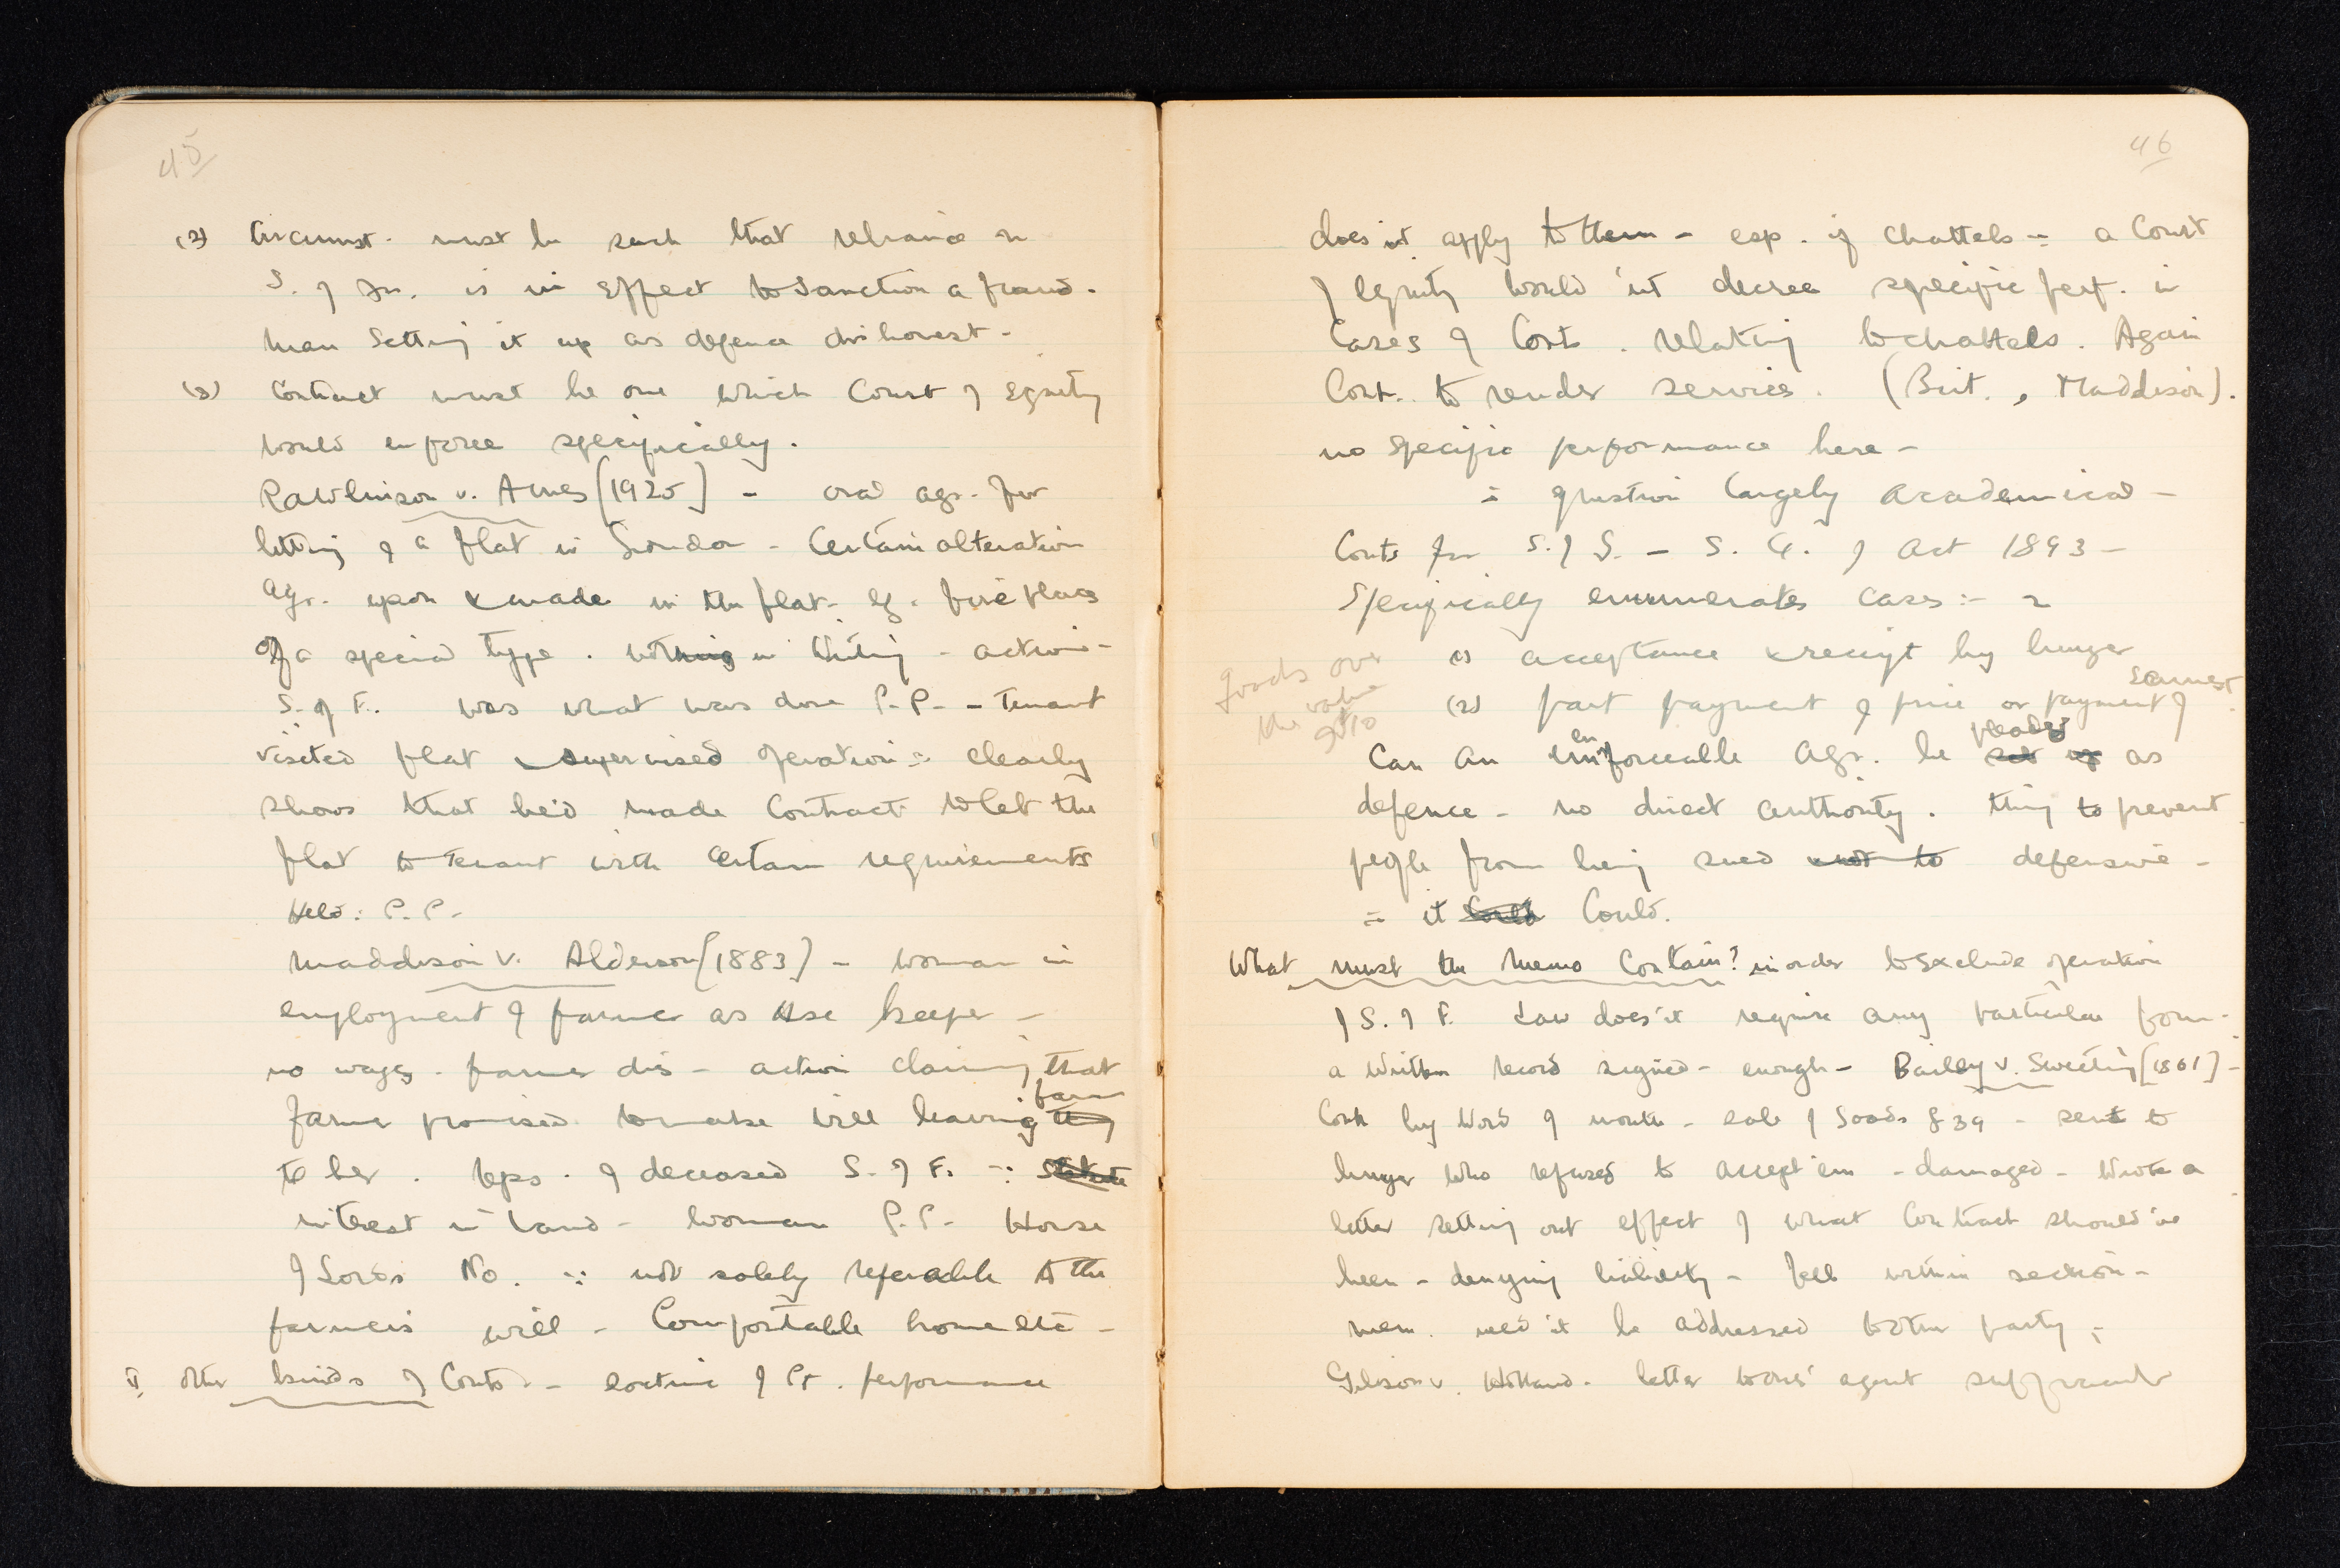 45
(2) Circumst. must be such that reliance on
S. of Fr. is in effect to sanction a fraud -
man setting it up as defence dishonest -
(3) Contract must be one which Court of Equity
would enforce specifically.
Rawlinson v. Ames [1925] - oral agr. for
letting of a flat in London - Certain alteration
agr. upon & made in the flat - eg. fire place
of a special type. nothing in writing - action -
S. of F. was what was done P.P. - Tenant
visited flat & supervised operation ∴ clearly
shows that he'd made Contract to let the
flat to tenant with certain requirements
Held: P.P.
Maddison v. Alderson [1883] - woman in
employment of farmer as Hse keeper -
no wages - farmer dies - action claiming that
farmer promised to make will leaving farm
to her. Reps. of deceased S. of F. ∵
interest in land - woman P.P. House
of Lords No. ∵ not solely referable to the
farmer's will - Comfortable home etc -
II other kinds of Conts - doctrine of Pt. performance
46
does n't apply to them - esp. if chattels ∴ a Court
of Equity would n't decree specific perf. in
Cases of Cont. relating to chattels. Again
Cont. to render services. (Brit., Maddison).
no specific performance here -
∴ question largely academical -
Conts for S. of G. - S. G. of Act 1893 -
Specifically enumerates cases :-
(1) acceptance & receipt by buyer
(2) part payment of price or payment of earnest
goods over
the value
of £10
Can an unenforceable Agr. be pleaded as
defence - no direct authority. thing to prevent
people from being sued defensive -
∴ it Could.
What must the Memo Contain? in order to exclude operation
of S. of F. Law does n't require any particular form -
a written record signed - enough - Bailey v. Sweeting [1861] -
Cont by word of mouth - sale of Goods £39 - sent to
buyer who refused to accept 'em - damaged - wrote a
letter setting out effect of what Contract should 've
been - denying liability - fell within section -
mem. need n't be addressed to other party ;
Gibson v. Holland - letter to one's agent sufficient